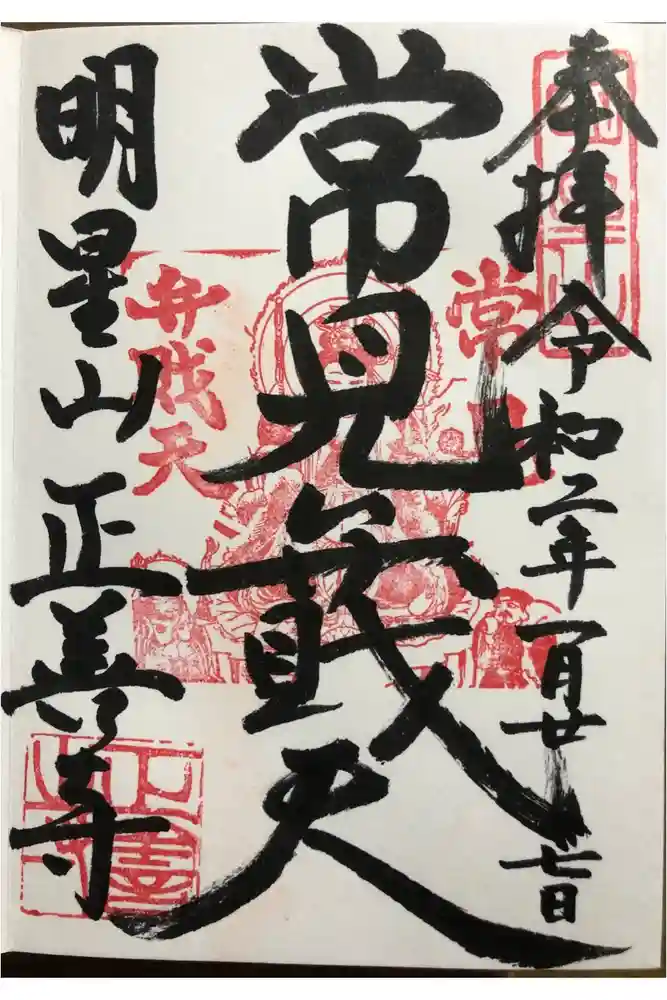 奉拝 令和二年一月廿七日
常見弁戝天
明星山 正善寺
常見
弁戝天